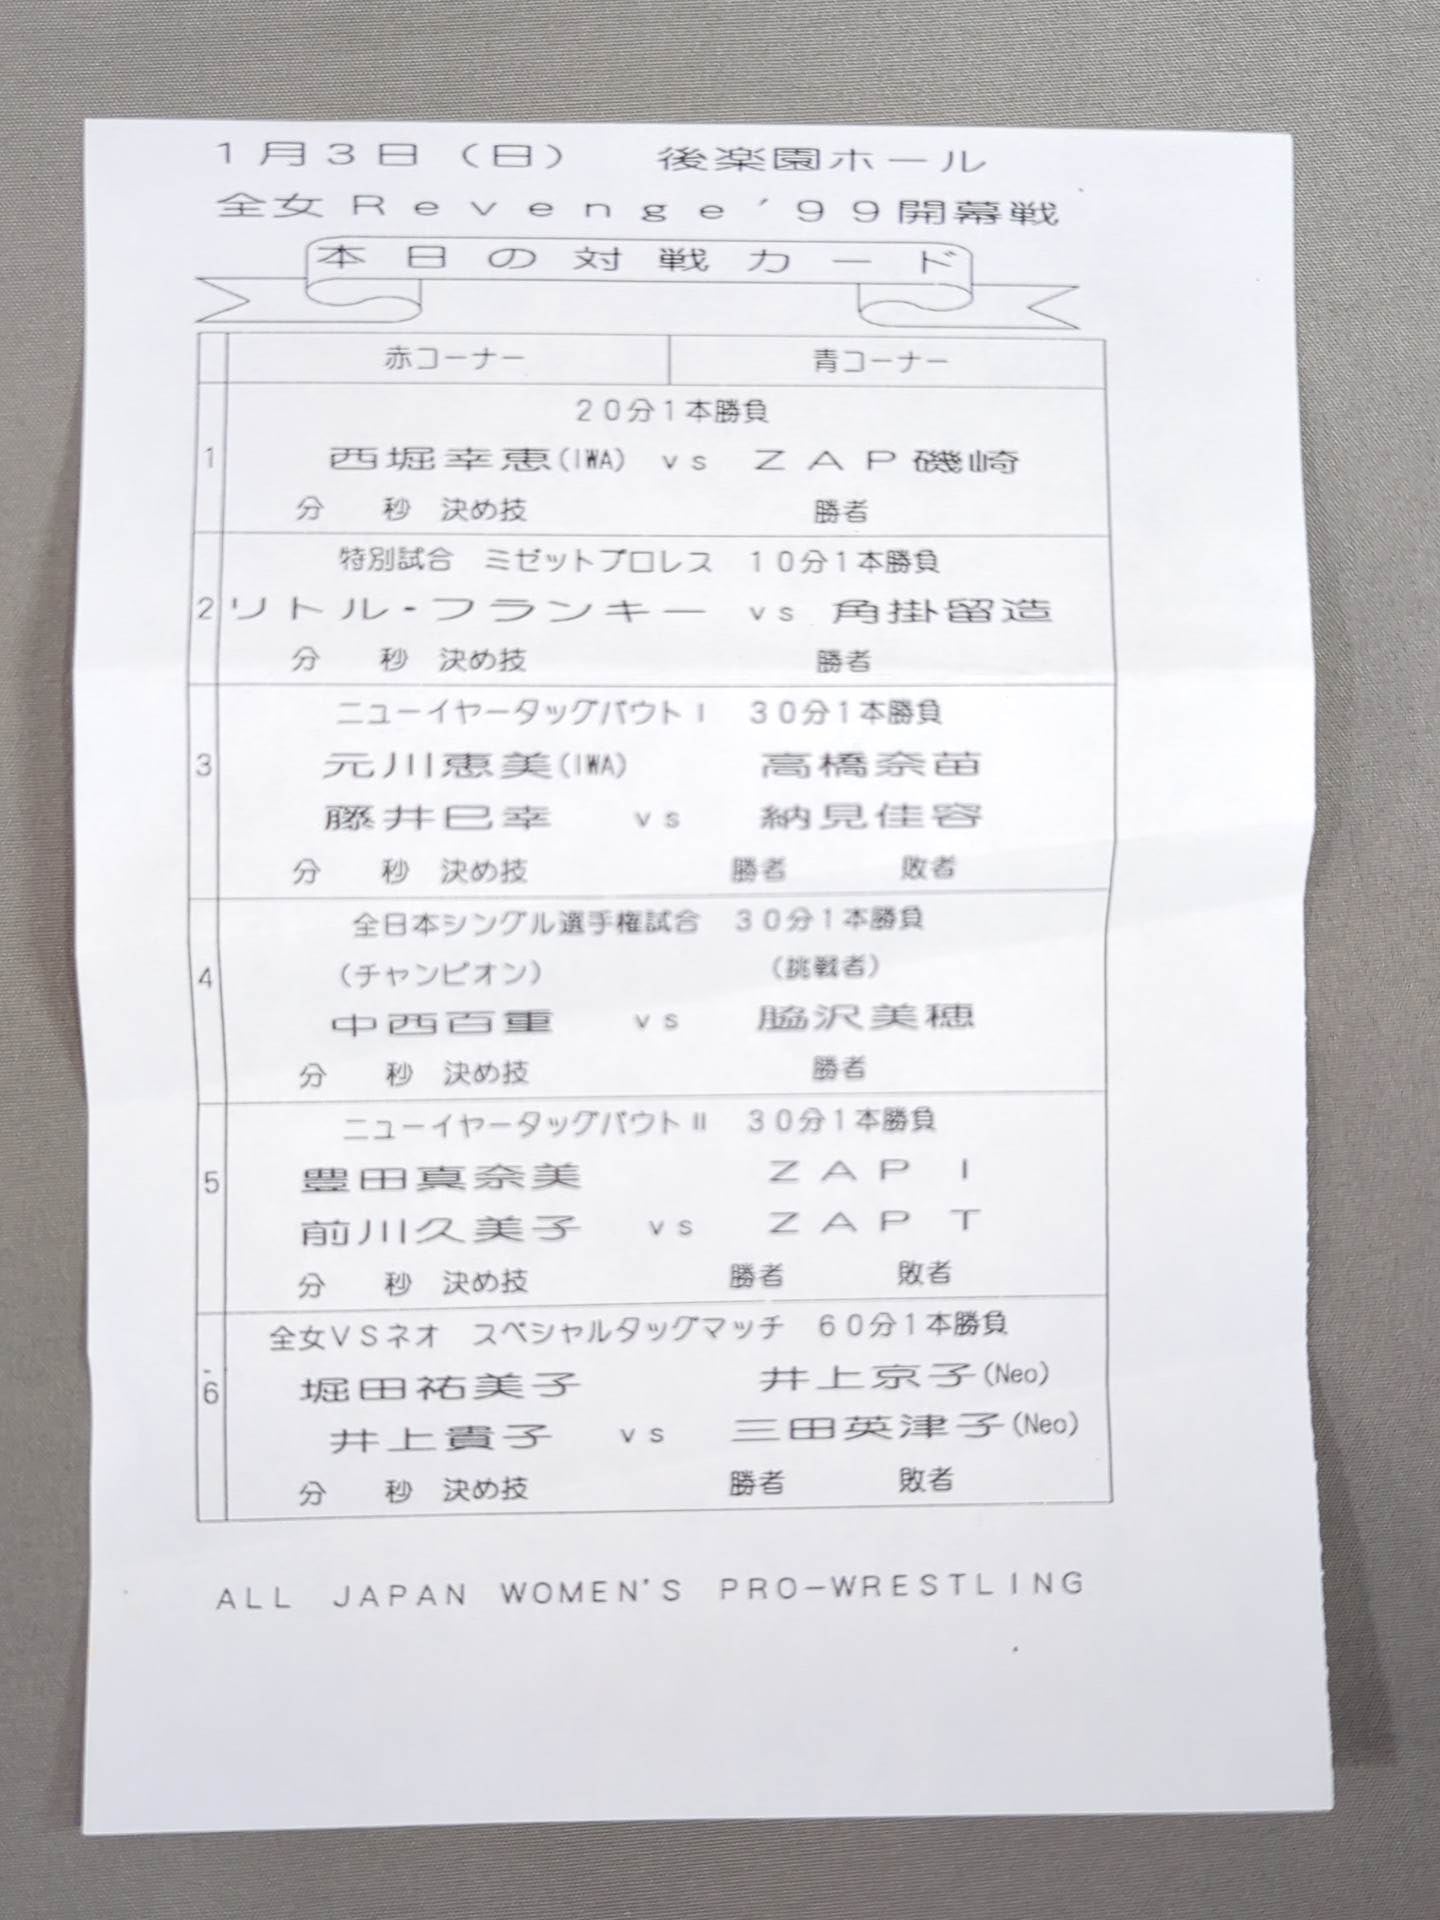 1月3日（日）　後楽園ホール
全女Revenge'99開幕戦
本日の対戦カード
赤コーナー　青コーナー
20分1本勝負
1　西堀幸恵(IWA)　vs　ZAP磯崎
分　秒　決め技　勝者
特別試合　ミゼットプロレス　10分1本勝負
2　リトル・フランキー　vs　角掛留造
分　秒　決め技　勝者
ニューイヤータッグバウトⅠ　30分1本勝負
3　元川恵美(IWA)　高橋奈苗
藤井巳幸　vs　納見佳容
分　秒　決め技　勝者　敗者
全日本シングル選手権試合　30分1本勝負
4　（チャンピオン）　（挑戦者）
中西百重　vs　脇沢美穂
分　秒　決め技　勝者
ニューイヤータッグバウトⅡ　30分1本勝負
5　豊田真奈美　ZAP I
前川久美子　vs　ZAP T
分　秒　決め技　勝者　敗者
全女VSネオ　スペシャルタッグマッチ　60分1本勝負
6　堀田祐美子　井上京子(Neo)
井上貴子　vs　三田英津子(Neo)
分　秒　決め技　勝者　敗者
ALL JAPAN WOMEN'S PRO-WRESTLING